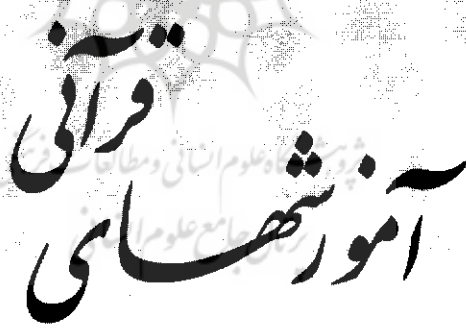 آموزشهای
قرآنی
پژوهشگاه علوم انسانی و مطالعات فرهنگی
پرتال جامع علوم انسانی